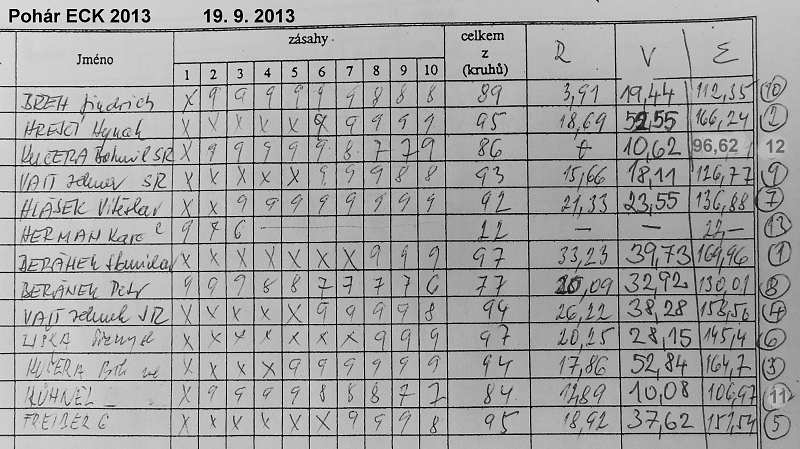 Pohár ECK 2013 19. 9. 2013
Jméno zásahy celkem z (kruhů) R V Σ
1 2 3 4 5 6 7 8 9 10
BREH Jindrich X 9 9 9 9 9 9 8 8 8 89 3,91 19,44 112,35 10
HREJCÍ Hynek X X X X X X 9 9 9 9 95 18,69 52,55 166,24 2
KUCERA Bohumil SR X 9 9 9 9 9 8 7 7 9 86 10,62 96,62 12
VAJT SR X X X X X 9 9 9 8 8 93 15,66 18,11 126,77 9
HLÁSEK Vítěslav X X 9 9 9 9 9 9 9 9 92 21,33 23,55 136,88 7
HERMAN Karel 9 7 6 22 — — 22,— 13
BERÁNEK Stanislav X X X X X X X 9 9 9 97 33,23 39,73 169,96 1
BERÁNEK Petr 9 9 9 8 8 7 7 7 7 6 77 20,09 32,92 130,01 8
VAJT JR X X X X X 9 9 9 9 8 94 26,22 38,28 158,50 4
LISKA X X X X X X X 9 9 9 97 20,25 28,15 145,4 6
KUCERA X X X X 9 9 9 9 9 9 94 17,86 52,84 164,7 3
KÜHNEL X 9 9 9 9 8 8 8 7 7 84 12,89 10,08 106,97 11
FREIBERG X X X X X X 9 9 9 8 95 18,92 37,62 151,54 5